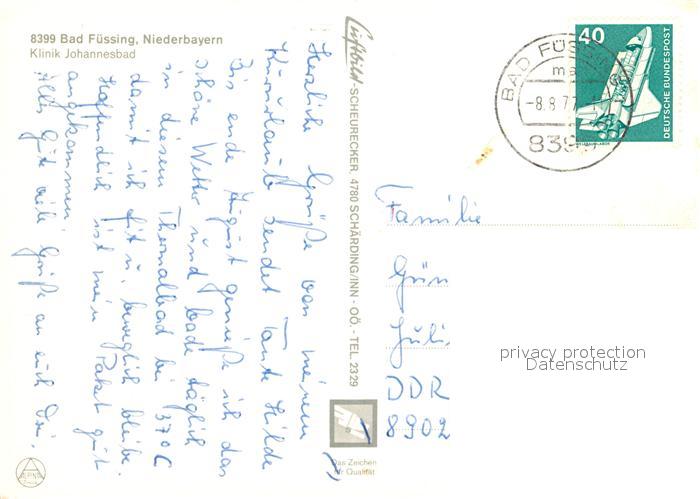 8399 Bad Füssing, Niederbayern
Klinik Johannesbad
Herzliche Grüße von meinem
Kururlaub sendet Tante Hilde
Bis ende August genieße ich das
schöne Wetter und bade täglich
in diesem Thermalbad bei 37°C
damit ich fit u. beweglich bleibe.
Hoffendlich ist mein Paket gut
angekommen.
Alles Gute viele Grüße an euch Drei.
Luftbild-SCHEURECKER, 4780 SCHÄRDING/INN - OÖ. - TEL. 2329
Das Zeichen
für Qualität
ALPINA
40
DEUTSCHE BUNDESPOST
BAD FÜSSING
-8.8.77
8399
Familie
Gün
Juli
DDR
8902
privacy protection
Datenschutz